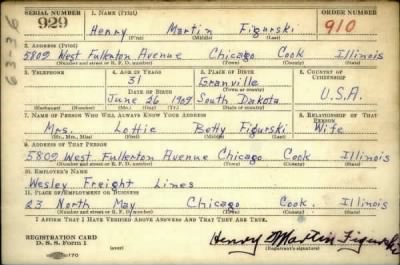 SERIAL NUMBER 1. NAME (Print) ORDER NUMBER
929 Henry Martin Figurski 910
(First) (Middle) (Last)
2. ADDRESS (Print)
5809 West Fullerton Avenue Chicago Cook Illinois
(Number and street or R. F. D. number) (Town) (County) (State)
3. TELEPHONE 4. AGE IN YEARS 5. PLACE OF BIRTH 6. COUNTRY OF CITIZENSHIP
31 Granville
DATE OF BIRTH (Town or county)
June 26 1909 South Dakota U.S.A.
(Exchange) (Number) (Mo.) (Day) (Yr.) (State or country)
7. NAME OF PERSON WHO WILL ALWAYS KNOW YOUR ADDRESS 8. RELATIONSHIP OF THAT PERSON
Mrs. Lottie Betty Figurski Wife
(Mr., Mrs., Miss) (First) (Middle) (Last)
9. ADDRESS OF THAT PERSON
5809 West Fullerton Avenue Chicago Cook Illinois
(Number and street or R. F. D. number) (Town) (County) (State)
10. EMPLOYER'S NAME
Wesley Freight Lines
11. PLACE OF EMPLOYMENT OR BUSINESS
23 North May Chicago Cook. Illinois
(Number and street or R. F. D. number) (Town) (County) (State)
I AFFIRM THAT I HAVE VERIFIED ABOVE ANSWERS AND THAT THEY ARE TRUE.
REGISTRATION CARD
D. S. S. Form 1 Henry Martin Figurski
(Registrant's signature)
63-36